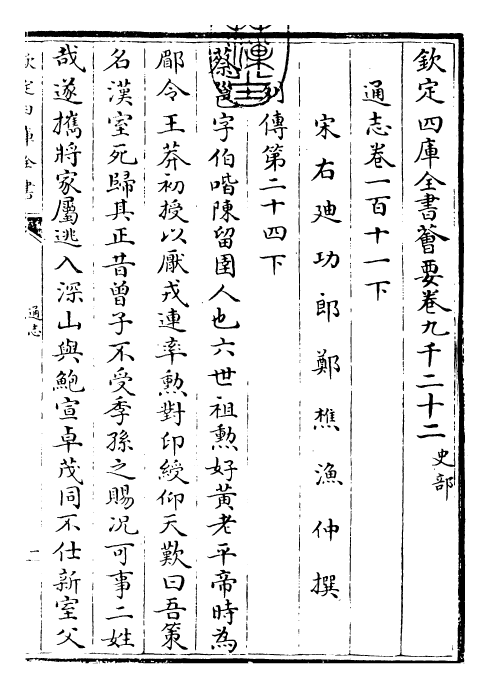 欽定四庫全書薈要卷九千二十二 史部
通志卷一百十一下
宋右廸功郎鄭樵漁仲撰
列傳第二十四下
蔡邕字伯喈陳留圉人也六世祖勲好黃老平帝時為
郿令王莽初授以厭戎連率勲對印綬仰天歎曰吾策
名漢室死歸其正昔曾子不受季孫之賜況可事二姓
哉遂攜將家屬逃入深山與鮑宣卓茂同不仕新室父
欽定四庫全書
通志